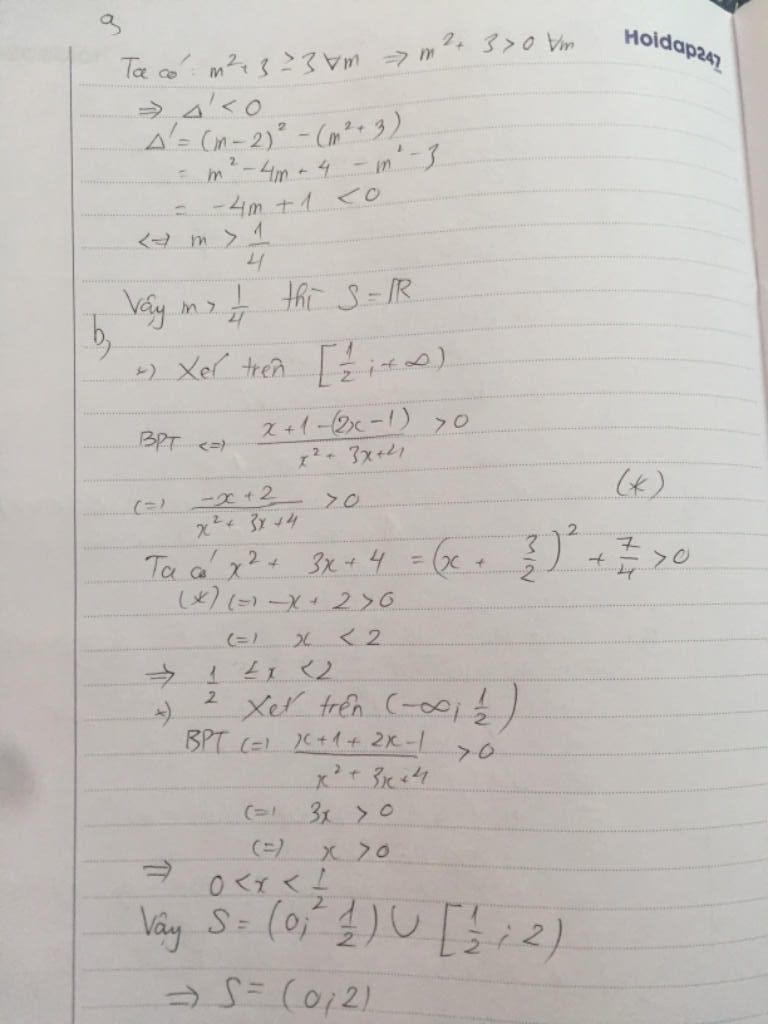 a,
Hoidap247
Ta có: m² + 3 ≥ 3 ∀m ⇒ m² + 3 > 0 ∀m
⇒ Δ' < 0
Δ' = (m-2)² - (m² + 3)
= m² - 4m + 4 - m² - 3
= -4m + 1 < 0
<=> m > 1/4
Vậy m > 1/4 thì S = ℝ
b,
*) Xét trên [1/2 ; +∞)
BPT <=> (x + 1 - (2x - 1))/(x² + 3x + 4) > 0
<=> (-x + 2)/(x² + 3x + 4) > 0 (*)
Ta có x² + 3x + 4 = (x + 3/2)² + 7/4 > 0
(*) <=> -x + 2 > 0
<=> x < 2
⇒ 1/2 ≤ x < 2
*) Xét trên (-∞; 1/2)
BPT <=> (x + 1 + 2x - 1)/(x² + 3x + 4) > 0
<=> 3x > 0
<=> x > 0
⇒ 0 < x < 1/2
Vậy S = (0; 1/2) ∪ [1/2 ; 2)
⇒ S = (0; 2)